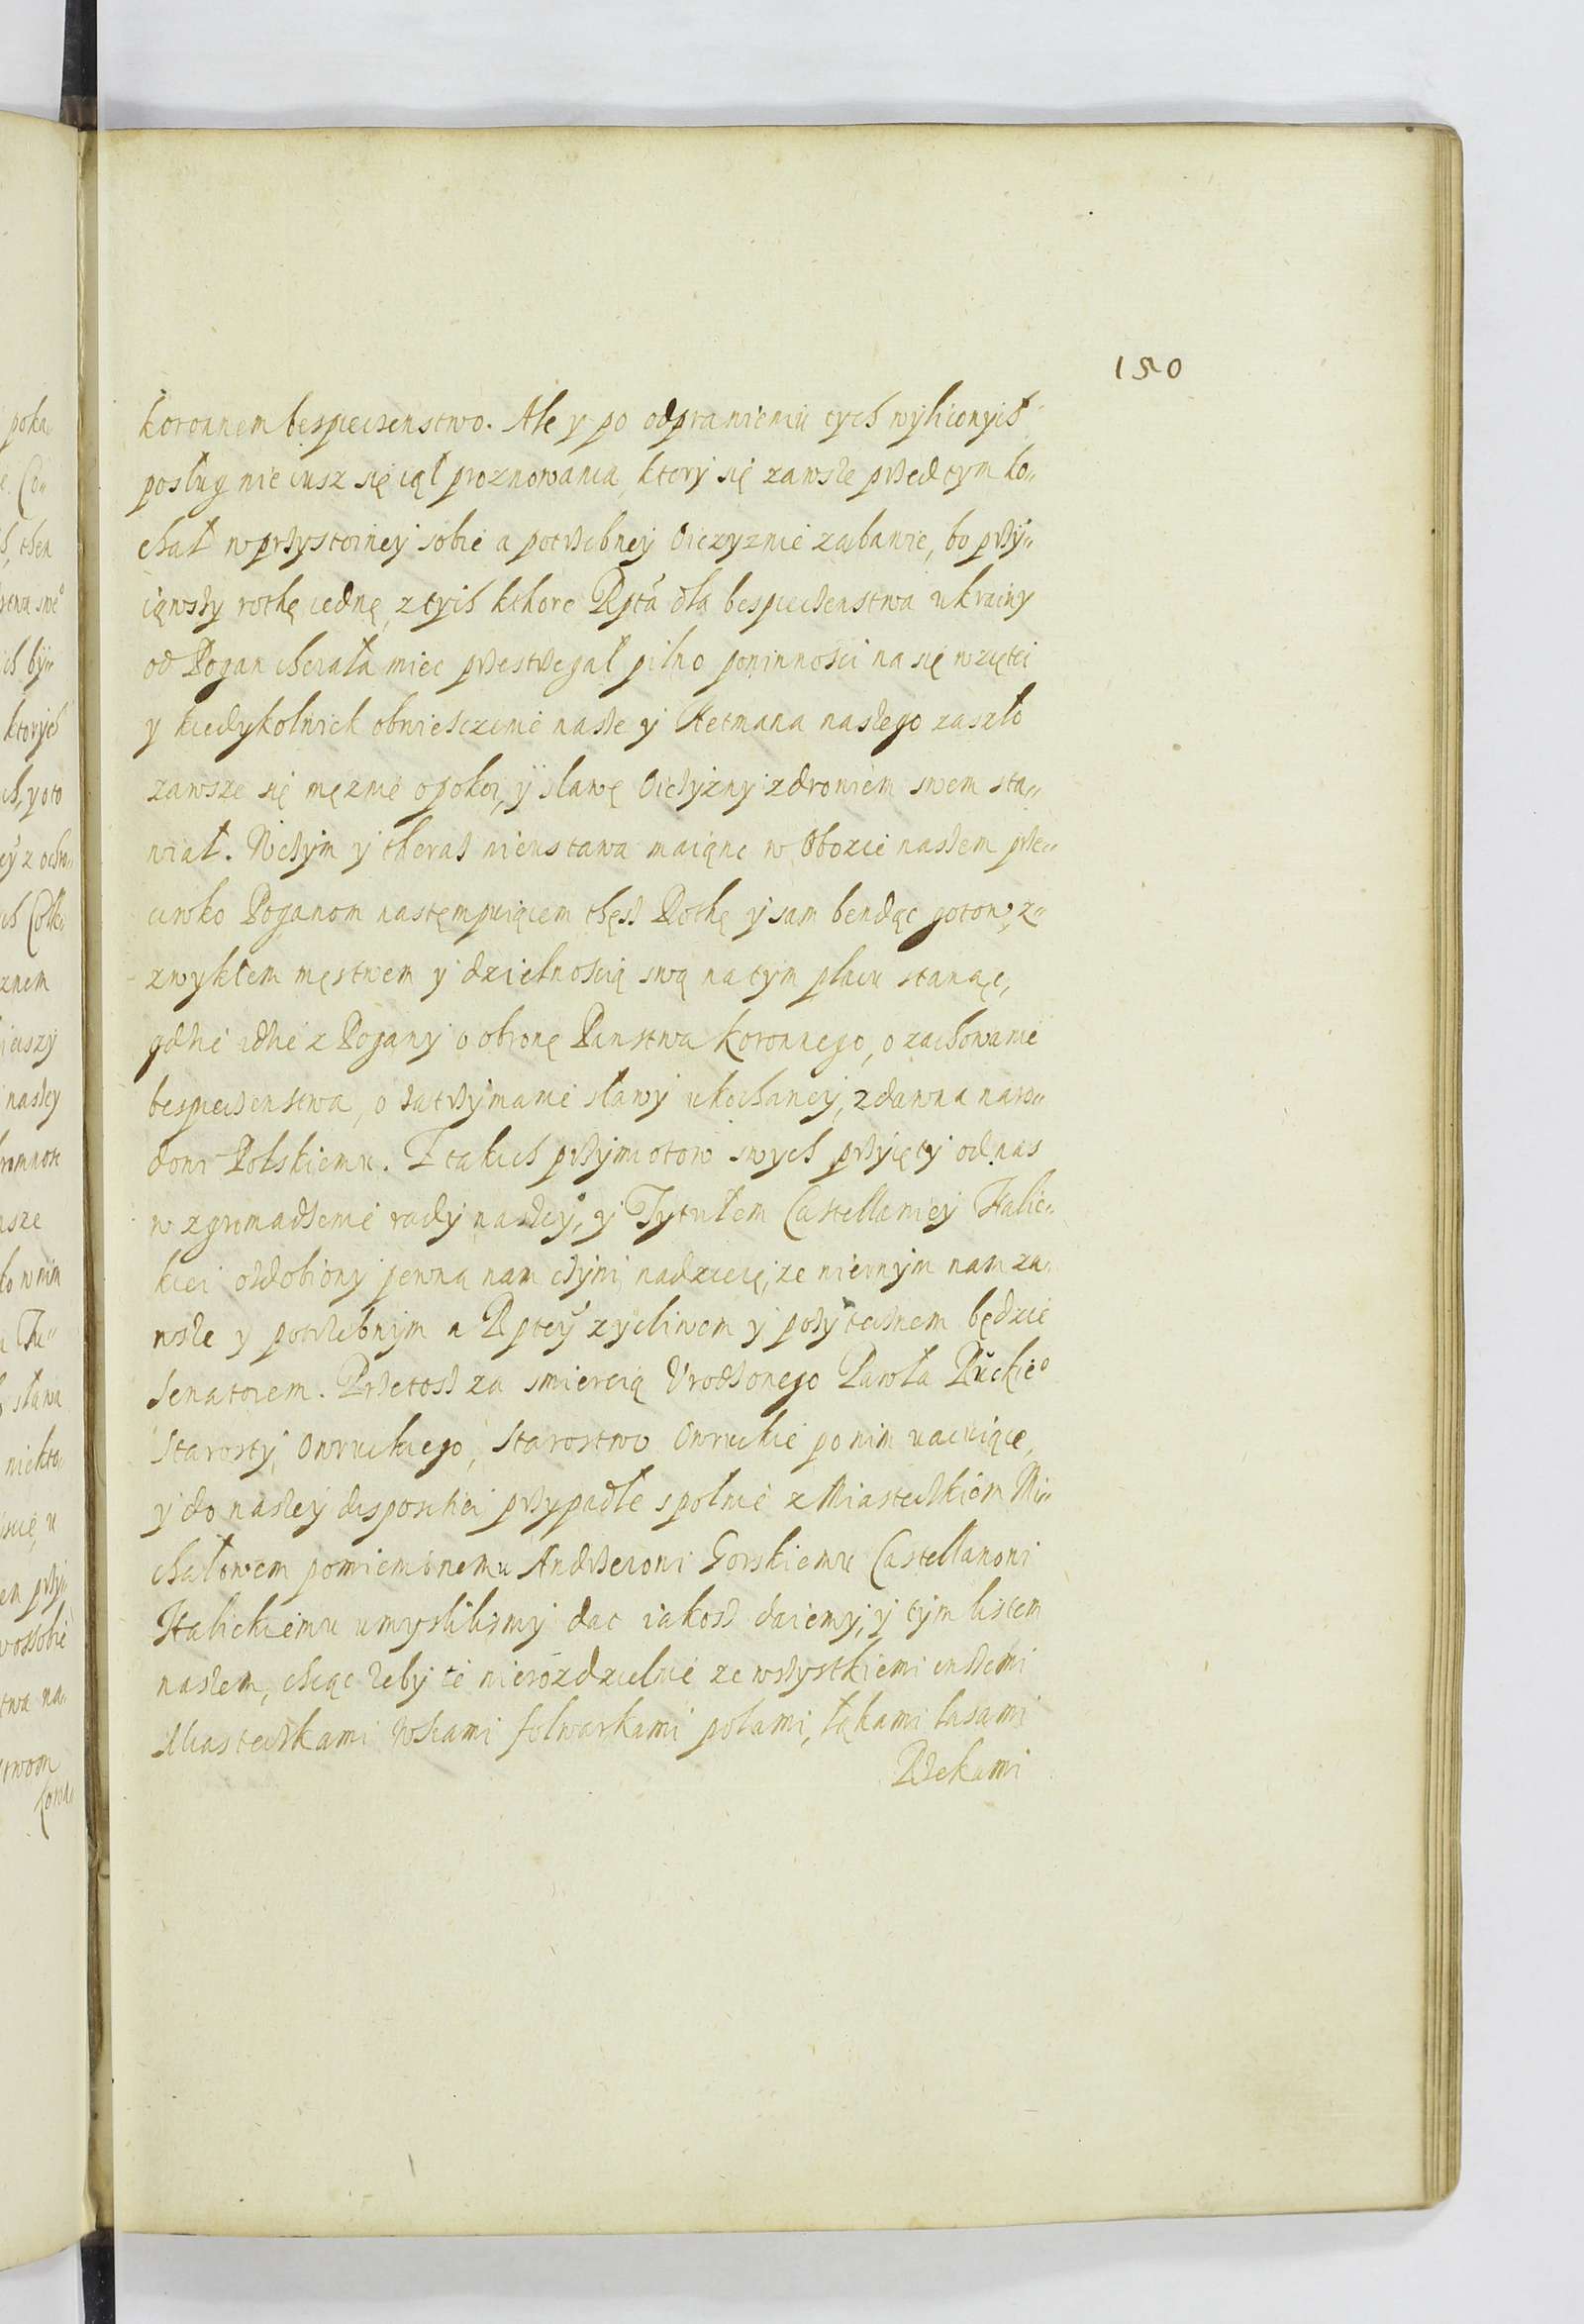 150
koronnem bespieczenstwo. Ale y po odprawieniu tych wyliczonych
posług nie iusz się iął proznowania, który się zawsze przed tym ko„
chał w przystoiney sobie a potrzebney Oiczyznie zabawie, bo przy„
iąwszy rothę iednę, z tych kthore Rpta dla bespieczenstwa ukrainy
od Pogan chciała miec przestrzegał pilno powinnosci na się wziętei
y kiedykolwiek obwiesczenie nasze y Hetmana naszego zaszło
zawsze się męznie o pokoi, y sławę Oiczyzny zdrowiem swem sta„
wiał. W czym y theraz nieustawa maiąnc w Obozie naszem prze„
ciwko Poganom następuiącem thęsz Rothę y sam bendąc gotow, z„
zwykłem męstwem y dzielnoscią swą na tym placu stanąc,
gdzie idzie z Pogany o obronę Panstwa Koronnego, o zachowanie
bespieczenstwa, o zatrzymanie sławy ukochaney, zdawna naro„
dowi Polskiemu. Z takich przymiotow swych przyięty od nas
w zgromadzenie rady naszey, y Tytułem Castellaniey Halic„
kiei ozdobiony pewną nam czyni nadzieię, ze wiernym nam za„
wsze y potrzebnym a Rptey zycliwem y pozytecznem będzie
Senatorem. Przetosz za smiercią Vrodzonego Pawła Ruckieo
Starosty Owruckiego, Starostwo Owruckie po nim vacuiące,
y do naszey dispositiei przypadłe spolnie z Miasteczkiem Mi„
chałowem pomienionemu Andrzeiowi Gorskiemu Castellanowi
Halickiemu umyslilismy dac iakosz daiemy, y tym listem
naszem, chcąc zeby te nierozdzielnie ze wszystkiemi inszemi
Miasteczkami Wsiami folwarkami polami, łąkami lasami
Rzekami